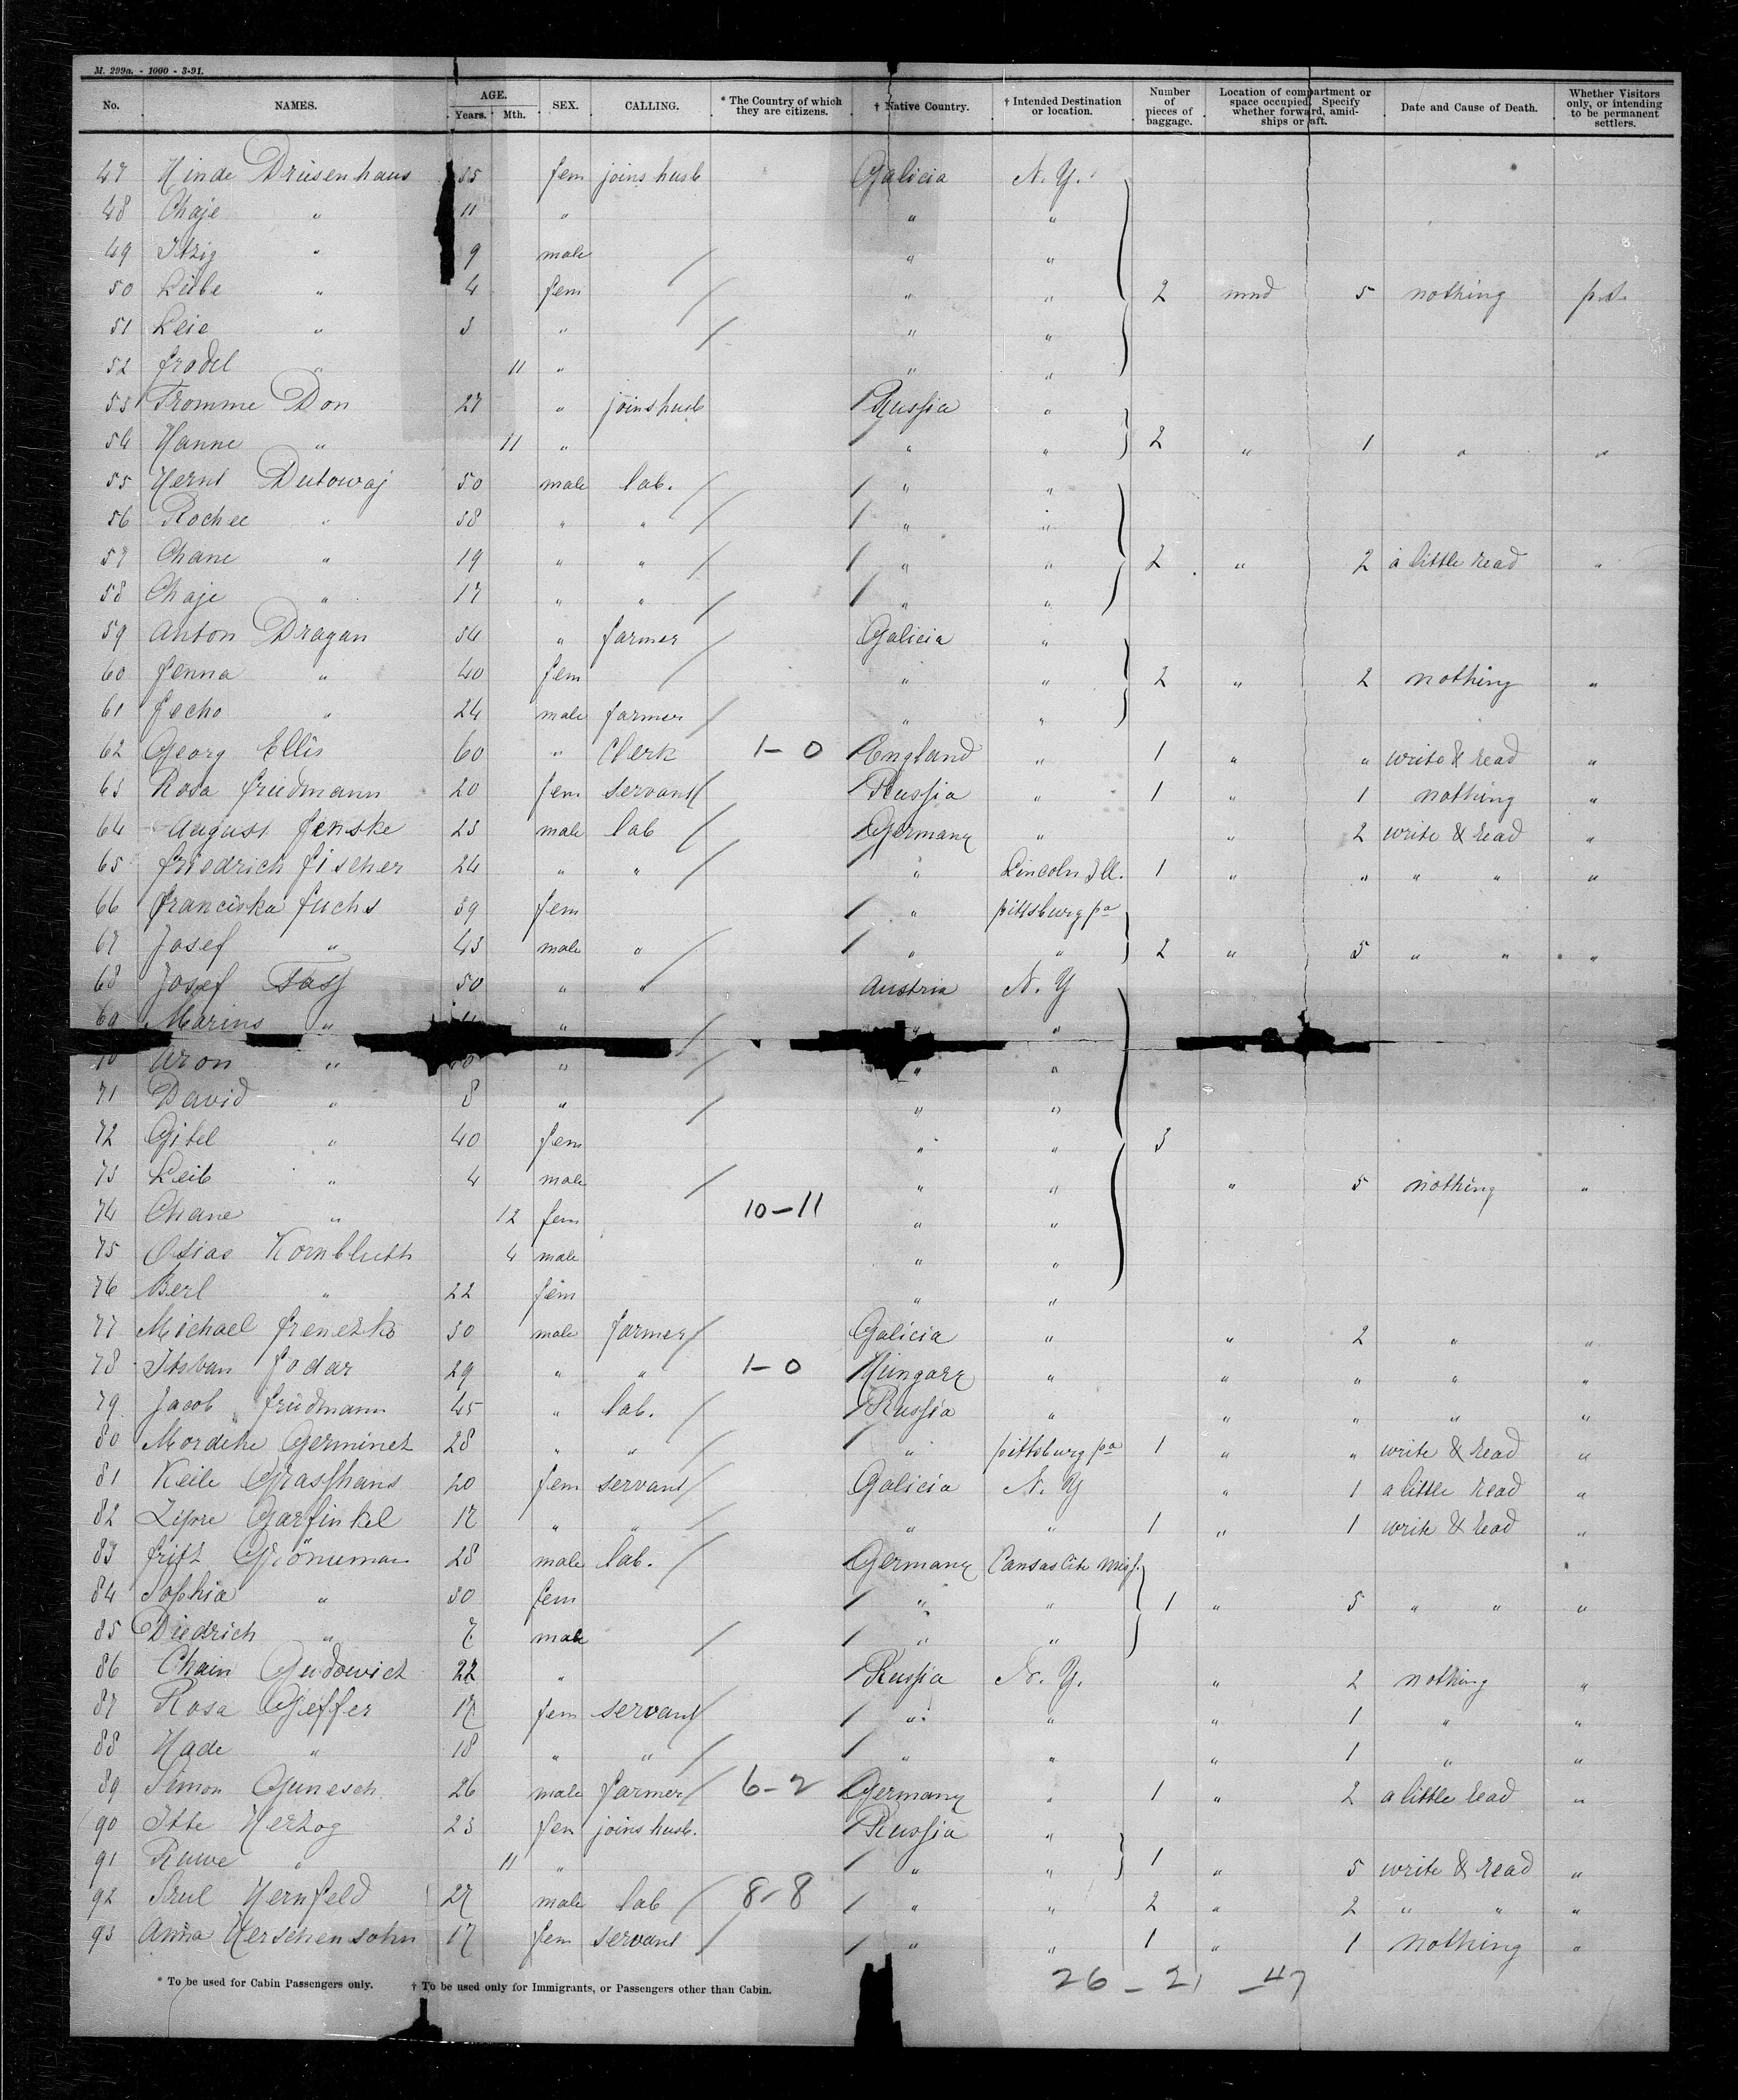 M. 299a. - 1000 - 3-91.
No. NAMES. AGE. Years. Mth. SEX. CALLING. * The Country of which they are citizens. † Native Country. † Intended Destination or location. Number of pieces of baggage. Location of compartment or space occupied. Specify whether forward, amidships or aft. Date and Cause of Death. Whether Visitors only, or intending to be permanent settlers.
47 Hinde Driesenhaus 35 fem joins husb Galicia N. Y.
48 Chaje " 11 " " "
49 Itzig " 9 male " "
50 Liebe " 4 fem " " 2 mnd 5 nothing p.s.
51 Leie " 3 " " "
52 frodel " 11 " " "
53 Fromme Don 27 " joins husb Russia "
54 Hanne " 11 " " " 2 " 1 " "
55 Dutowaj 50 male lab. " "
56 Rochel " 38 " " " "
57 Chane " 19 " " " " 2 " 2 a little read "
58 Chaje " 17 " " " "
59 Anton Dragan 54 " farmer Galicia "
60 fenna " 40 fem " " 2 " 2 nothing "
61 fecho " 24 male farmer " "
62 Georg Ellis 60 " Clerk 1-0 England " 1 " " write & read "
63 Rosa friedmann 20 fem servant Russia " 1 " 1 nothing "
64 August fenske 23 male lab Germany " " 2 write & read "
65 friedrich fischer 24 " " " Lincoln Ill. 1 " " " " "
66 franciska fuchs 39 fem " pittsburg pa
67 Josef " 43 male " " " 2 " 5 " " "
68 Josef Fass 50 " " Austria N. Y
69 Marins " " " "
70 Aron " " " "
71 David " 8 " " "
72 Gitel " 40 fem " " 3
73 Leib " 4 male " " " 5 nothing "
74 Chane " 12 fem 10-11 " "
75 Osias Kornbluth 4 male " "
76 Berl " 22 fem " "
77 Michael frenezko 30 male farmer Galicia " " 2 " "
78 Itsvan fodar 29 " " 1-0 Hungary " " " " "
79 Jacob friedmann 45 " lab. Russia " " " " "
80 Mordche Germinez 28 " " " pittsburg pa 1 " " write & read "
81 Keile Grasshans 20 fem servant Galicia N. Y " 1 a little read "
82 Garfinkel 17 " " " " 1 " 1 write & read "
83 fritz Grönneman 28 male lab. Germany Cansas Cite Miss.
84 Sophia " 30 fem " " 1 " 5 " " "
85 Diedrich " 7 male " "
86 Chain Gudowich 22 " Russia N. Y. " 2 nothing "
87 Rosa Geffer 17 fem servant " " " 1 " "
88 Hade " 18 " " " " " 1 " "
89 Simon Gunesch 26 male farmer 6-2 Germany " 1 " 2 a little read "
90 Itte Herzog 23 fem joins husb. Russia "
91 Ruwe " 11 " " " 1 " 5 write & read "
92 Srul Hernfeld 27 male lab 8-8 " " 2 " 2 " " "
93 Anna Herschensohn 17 fem servant " " 1 " 1 nothing "
* To be used for Cabin Passengers only. † To be used only for Immigrants, or Passengers other than Cabin.
26 - 21 - 47